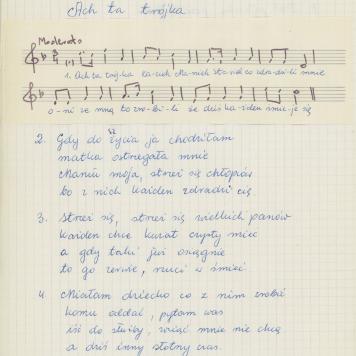 Ach ta trójka
Moderato
1. Ach ta trójka
o-ni ze mną to zro-bi-li że dziś każden śmie-je się
2. Gdy do życia ja chodziłam
matka ostregała mnie
Maniu moja, streż się chłopców
bo z nich każden zdradzi cię.
3. Streż się, streż się wielkich panów
każden chce kwiat czysty mieć
a gdy taki już osiągnie
to go zerwie, rzuci w śmieć
4. Miałam dziecko co z nim zrobić
komu oddać, pytam was
iść do służby, wziąć mnie nie chcą
a dziś zimny słotny czas.